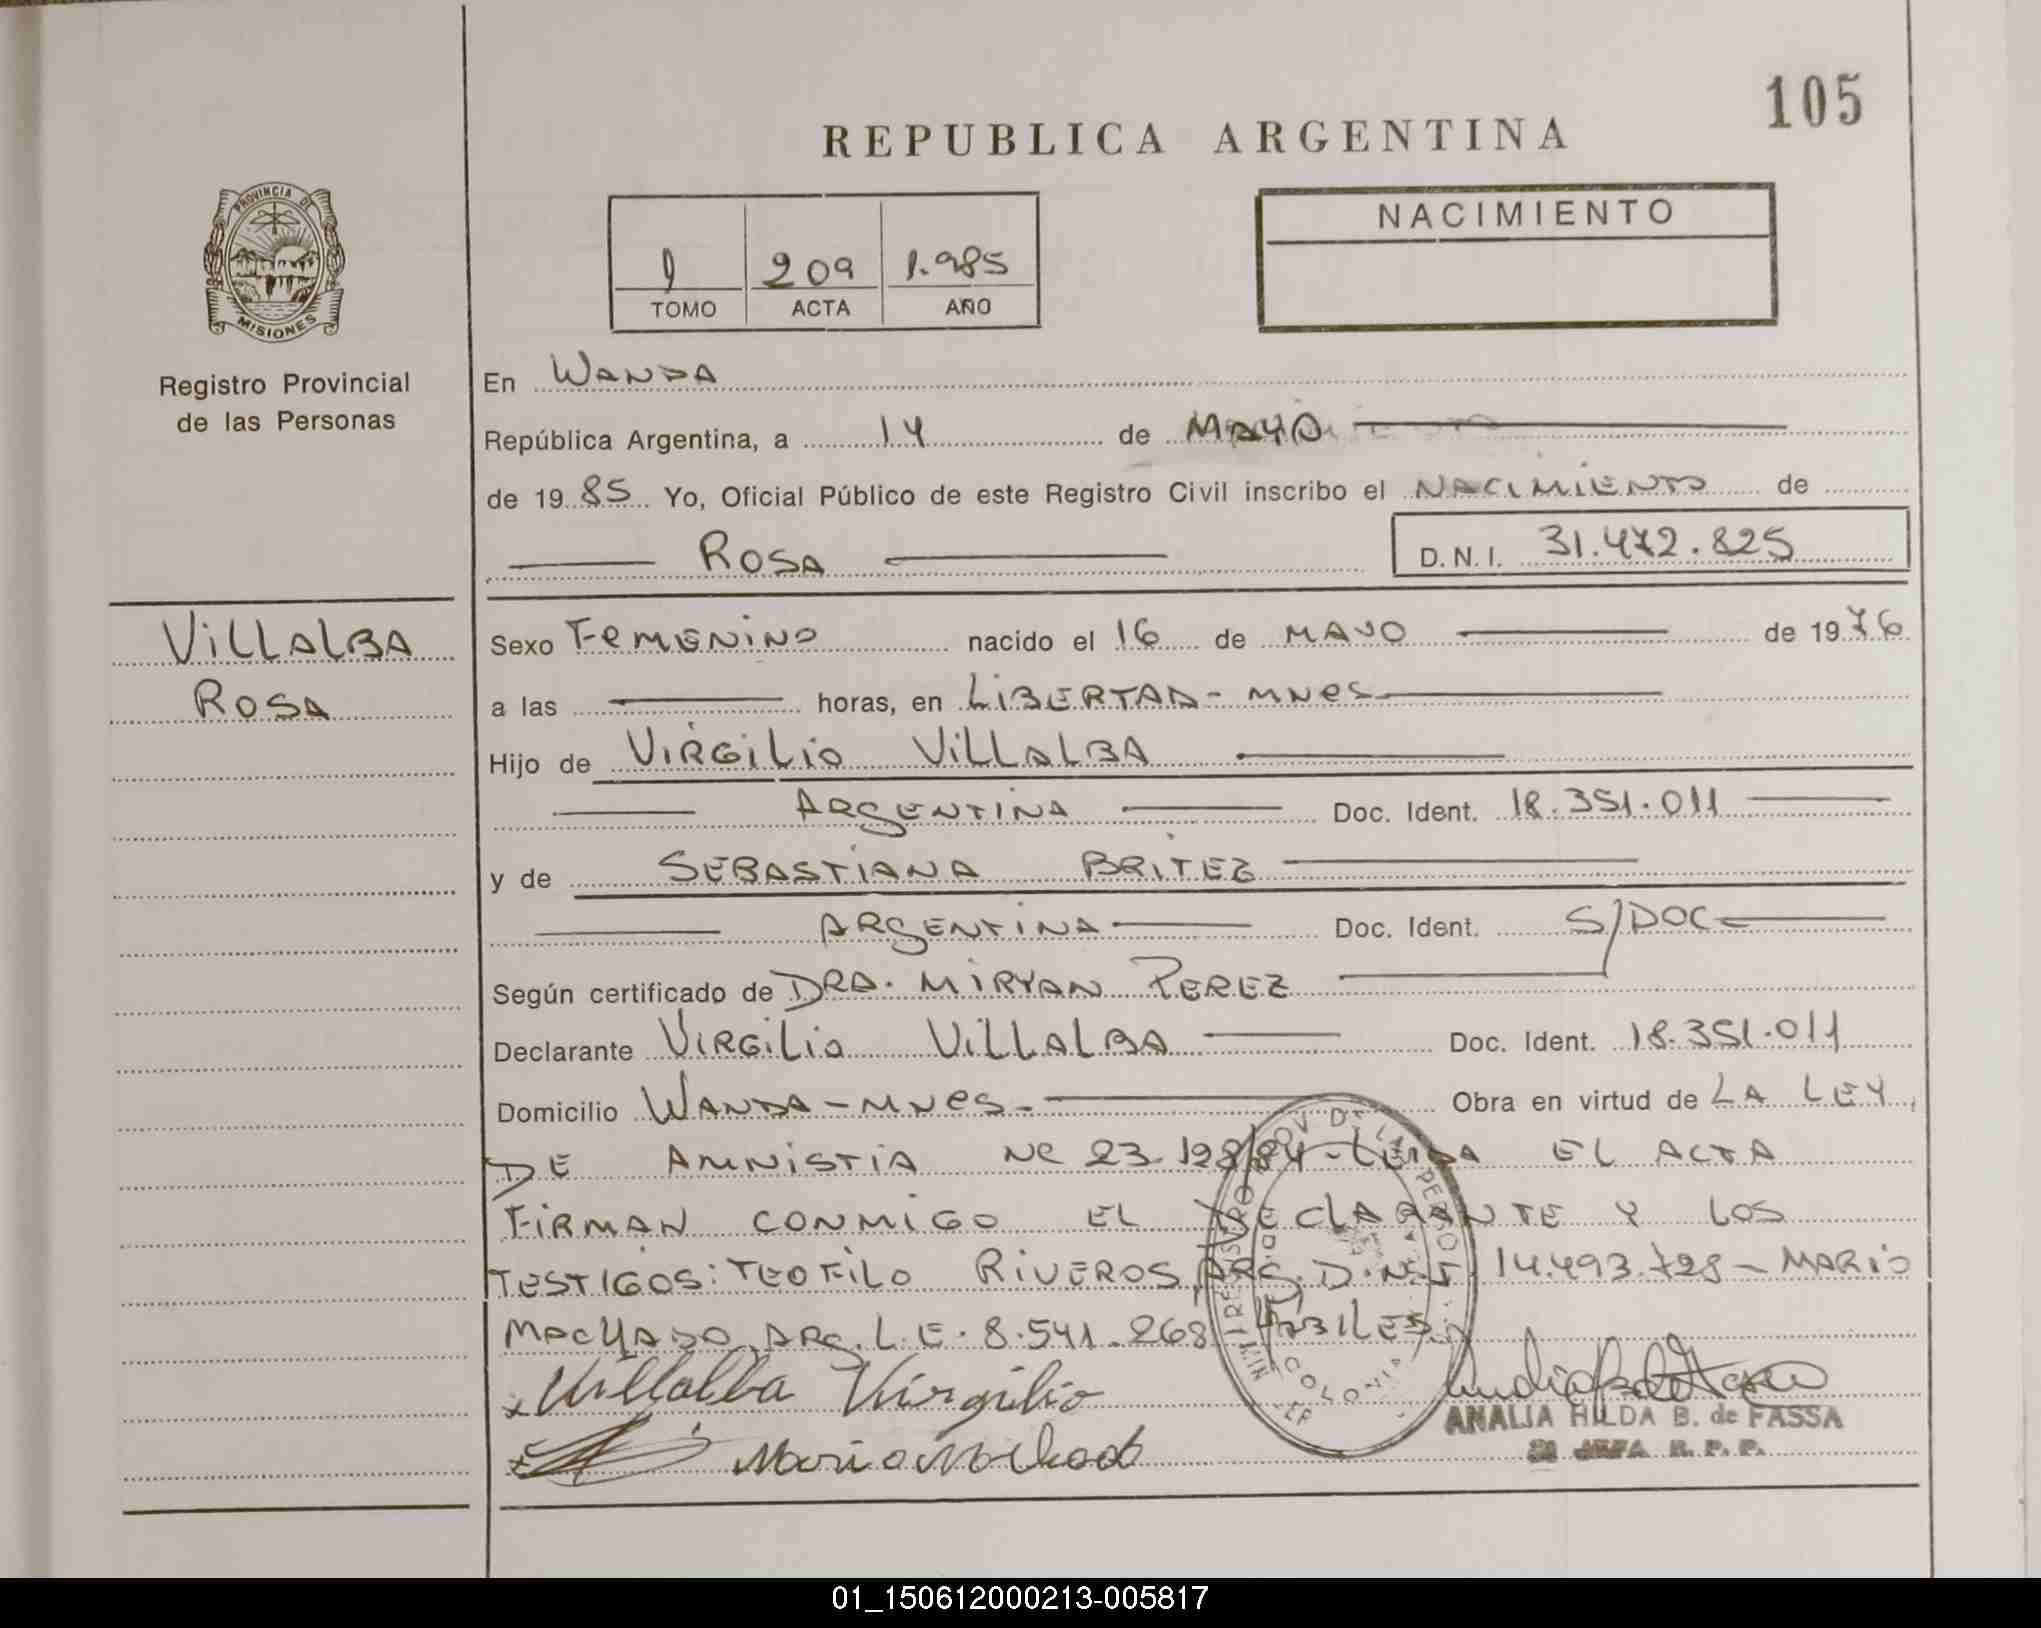 105
REPUBLICA ARGENTINA
PROVINCIA DE
MISIONES
Registro Provincial
de las Personas
1 209 1.985
TOMO ACTA AÑO
NACIMIENTO
En WANDA
República Argentina, a 14 de MAYO
de 1985 Yo, Oficial Público de este Registro Civil inscribo el NACIMIENTO de
ROSA D.N.I. 31.472.825
VILLALBA
ROSA
Sexo FEMENINO nacido el 16 de MAYO de 1976
a las horas, en LIBERTAD - MNES
Hijo de VIRGILIO VILLALBA
ARGENTINA Doc. Ident. 18.351.011
y de SEBASTIANA BRITEZ
ARGENTINA Doc. Ident. S/DOC
Según certificado de DRA. MIRYAN PEREZ
Declarante VIRGILIO VILLALBA Doc. Ident. 18.351.011
Domicilio WANDA - MNES - Obra en virtud de LA LEY
DE AMNISTIA Nº 23.128/84 - LEIDA EL ACTA
FIRMAN CONMIGO EL DECLARANTE Y LOS
TESTIGOS: TEOFILO RIVEROS, ARG. D.N.I. 14.493.728 - MARIO
MACHADO, ARG. L.E. 8.541.268 HABILES
x Villalba Virgilio
x Mario Machado
ANALIA HILDA B. de FASSA
JEFA R.P.P.
COLONIA
01_150612000213-005817